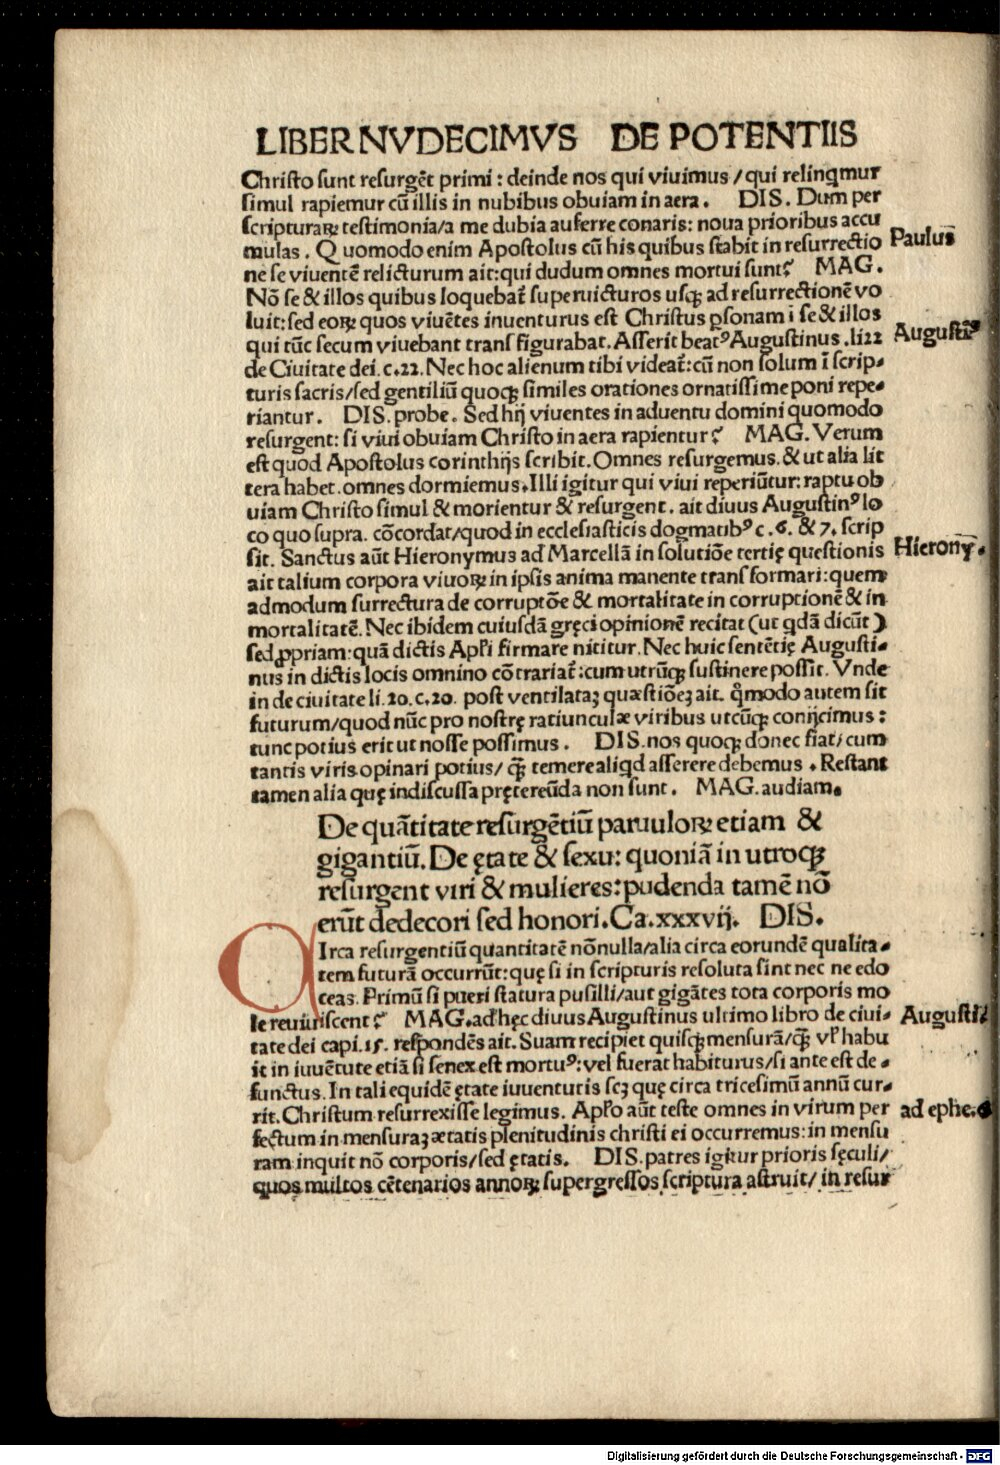 LIBER NVDECIMVS DE POTENTIIS
Christo sunt resurgēt primi : deinde nos qui viuimus / qui relinqmur
simul rapiemur cū illis in nubibus obuiam in aera . DIS . Dum per
scripturaꝝ testimonia/a me dubia auferre conaris: noua prioribus accu
mulas . Quomodo enim Apostolus cū his quibus stabit in resurrectio
Paulus
ne se viuentē relicturum ait:qui dudum omnes mortui sunt? MAG.
Nō se & illos quibus loquebat̄ superuicturos usqꝫ ad resurrectionē vo
luit: sed eoꝝ quos viuētes inuenturus est Christus ꝑsonam ī se & illos
Augusti⁹
qui tūc secum viuebant transfigurabat. Asserit beat⁹ Augustinus .li 22
de Ciuitate dei. c. 22. Nec hoc alienum tibi videat̄: cū non solum ī scrip-
turis sacris/sed gentiliū quoqꝫ similes orationes ornatissime poni repe-
riantur. DIS. probe. Sed hij viuentes in aduentu domini quomodo
resurgent: si viui obuiam Christo in aera rapientur? MAG. Verum
est quod Apostolus corinthijs scribit. Omnes resurgemus. & ut alia lit
tera habet. omnes dormiemus. Illi igitur qui viui reperiūtur: raptu ob
uiam Christo simul & morientur & resurgent. ait diuus Augustin⁹ lo
co quo supra. cōcordat/quod in ecclesiasticis dogmatib⁹ c. 6. & 7. scrip
sit. Sanctus aūt Hieronymus ad Marcellā in solutiōe tertię questionis
Hierony.
ait talium corpora viuoꝝ in ipsis anima manente transformari: quem
admodum surrectura de corruptōe & mortalitate in corruptionē & in
mortalitatē. Nec ibidem cuiusdā gręci opinionē recitat (ut qdā dicūt)
sed ꝓpriam: quā dictis Apłi firmare nititur. Nec huic sentētię Augusti-
nus in dictis locis omnino cōtrariat̄: cum utrūqꝫ sustinere possit. Vnde
in de ciuitate li. 20. c. 20. post ventilataꝫ quæstiōeꝫ ait. q̄modo autem sit
futurum/quod nūc pro nostrę ratiunculæ viribus utcūqꝫ conijcimus:
tunc potius erit ut nosse possimus. DIS. nos quoqꝫ donec fiat/cum
tantis viris opinari potius/ q̄ꝫ temere aliqd asserere debemus. Restant
tamen alia quę indiscussa prętereūda non sunt. MAG. audiam.
De quātitate resurgētiū paruuloꝝ etiam &
gigantiū. De ętate & sexu: quoniā in utroqꝫ
resurgent viri & mulieres: pudenda tamē nō
erūt dedecori sed honori. Ca. xxxvij. DIS.
CIrca resurgentiū quantitatē nōnulla/alia circa eorundē qualita-
tem futurā occurrūt: quę si in scripturis resoluta sint nec ne edo
ceas. Primū si pueri statura pusilli/aut gigātes tota corporis mo
le reuiuiscent? MAG. ad hęc diuus Augustinus ultimo libro de ciui-
Augusti
tate dei capi. 15. respondēs ait. Suam recipiet quisqꝫ mensurā/q̄ꝫ vł habu
it in iuuētute etiā si senex est mortu⁹: vel fuerat habiturus/si ante est de-
functus. In tali equidē ętate iuuentutis scꝫ quę circa tricesimū annū cur-
rit. Christum resurrexisse legimus. Apło aūt teste omnes in virum per
ad ephe. 4
fectum in mensuraꝫ ætatis plenitudinis christi ei occurremus: in mensu
ram inquit nō corporis/sed ętatis. DIS. patres igitur prioris sęculi/
quos multos cētenarios annoꝝ supergressos scriptura astruit/ in resur
Digitalisierung gefördert durch die Deutsche Forschungsgemeinschaft - DFG